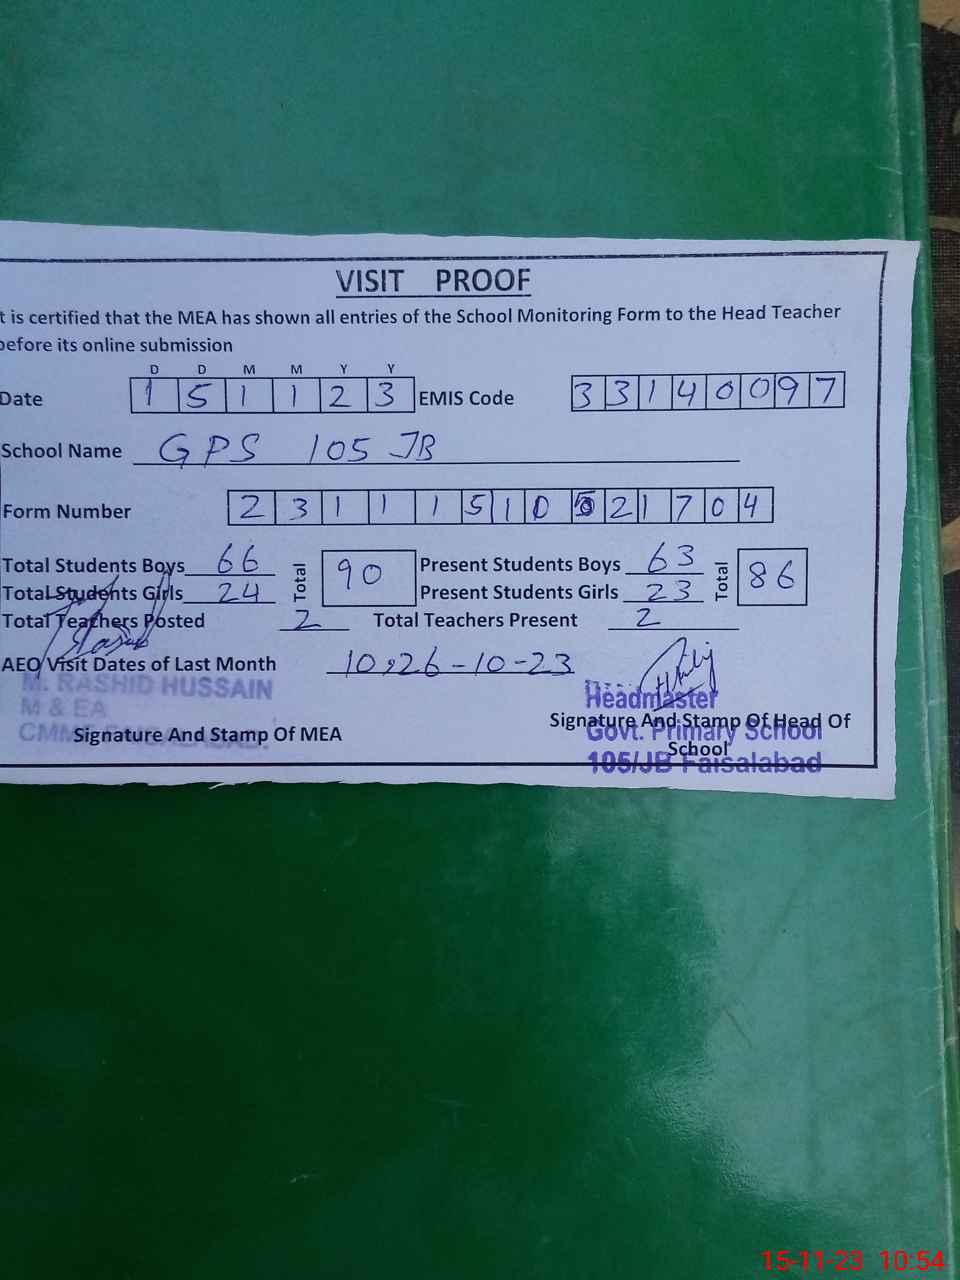 VISIT PROOF
t is certified that the MEA has shown all entries of the School Monitoring Form to the Head Teacher
before its online submission
D D M M Y Y
Date 1 5 1 1 2 3 EMIS Code 3 3 1 4 0 0 9 7
School Name GPS 105 JB
Form Number 2 3 1 1 1 5 1 0 5 2 1 7 0 4
Total Students Boys 66 Total 90 Present Students Boys 63 Total 86
Total Students Girls 24 Present Students Girls 23
Total Teachers Posted 2 Total Teachers Present 2
AEO Visit Dates of Last Month 10,26-10-23
M. RASHID HUSSAIN
M & EA
Signature And Stamp Of MEA
Headmaster
Signature And Stamp Of Head Of
Govt. Primary School
School
105/JB Faisalabad
15-11-23 10:54